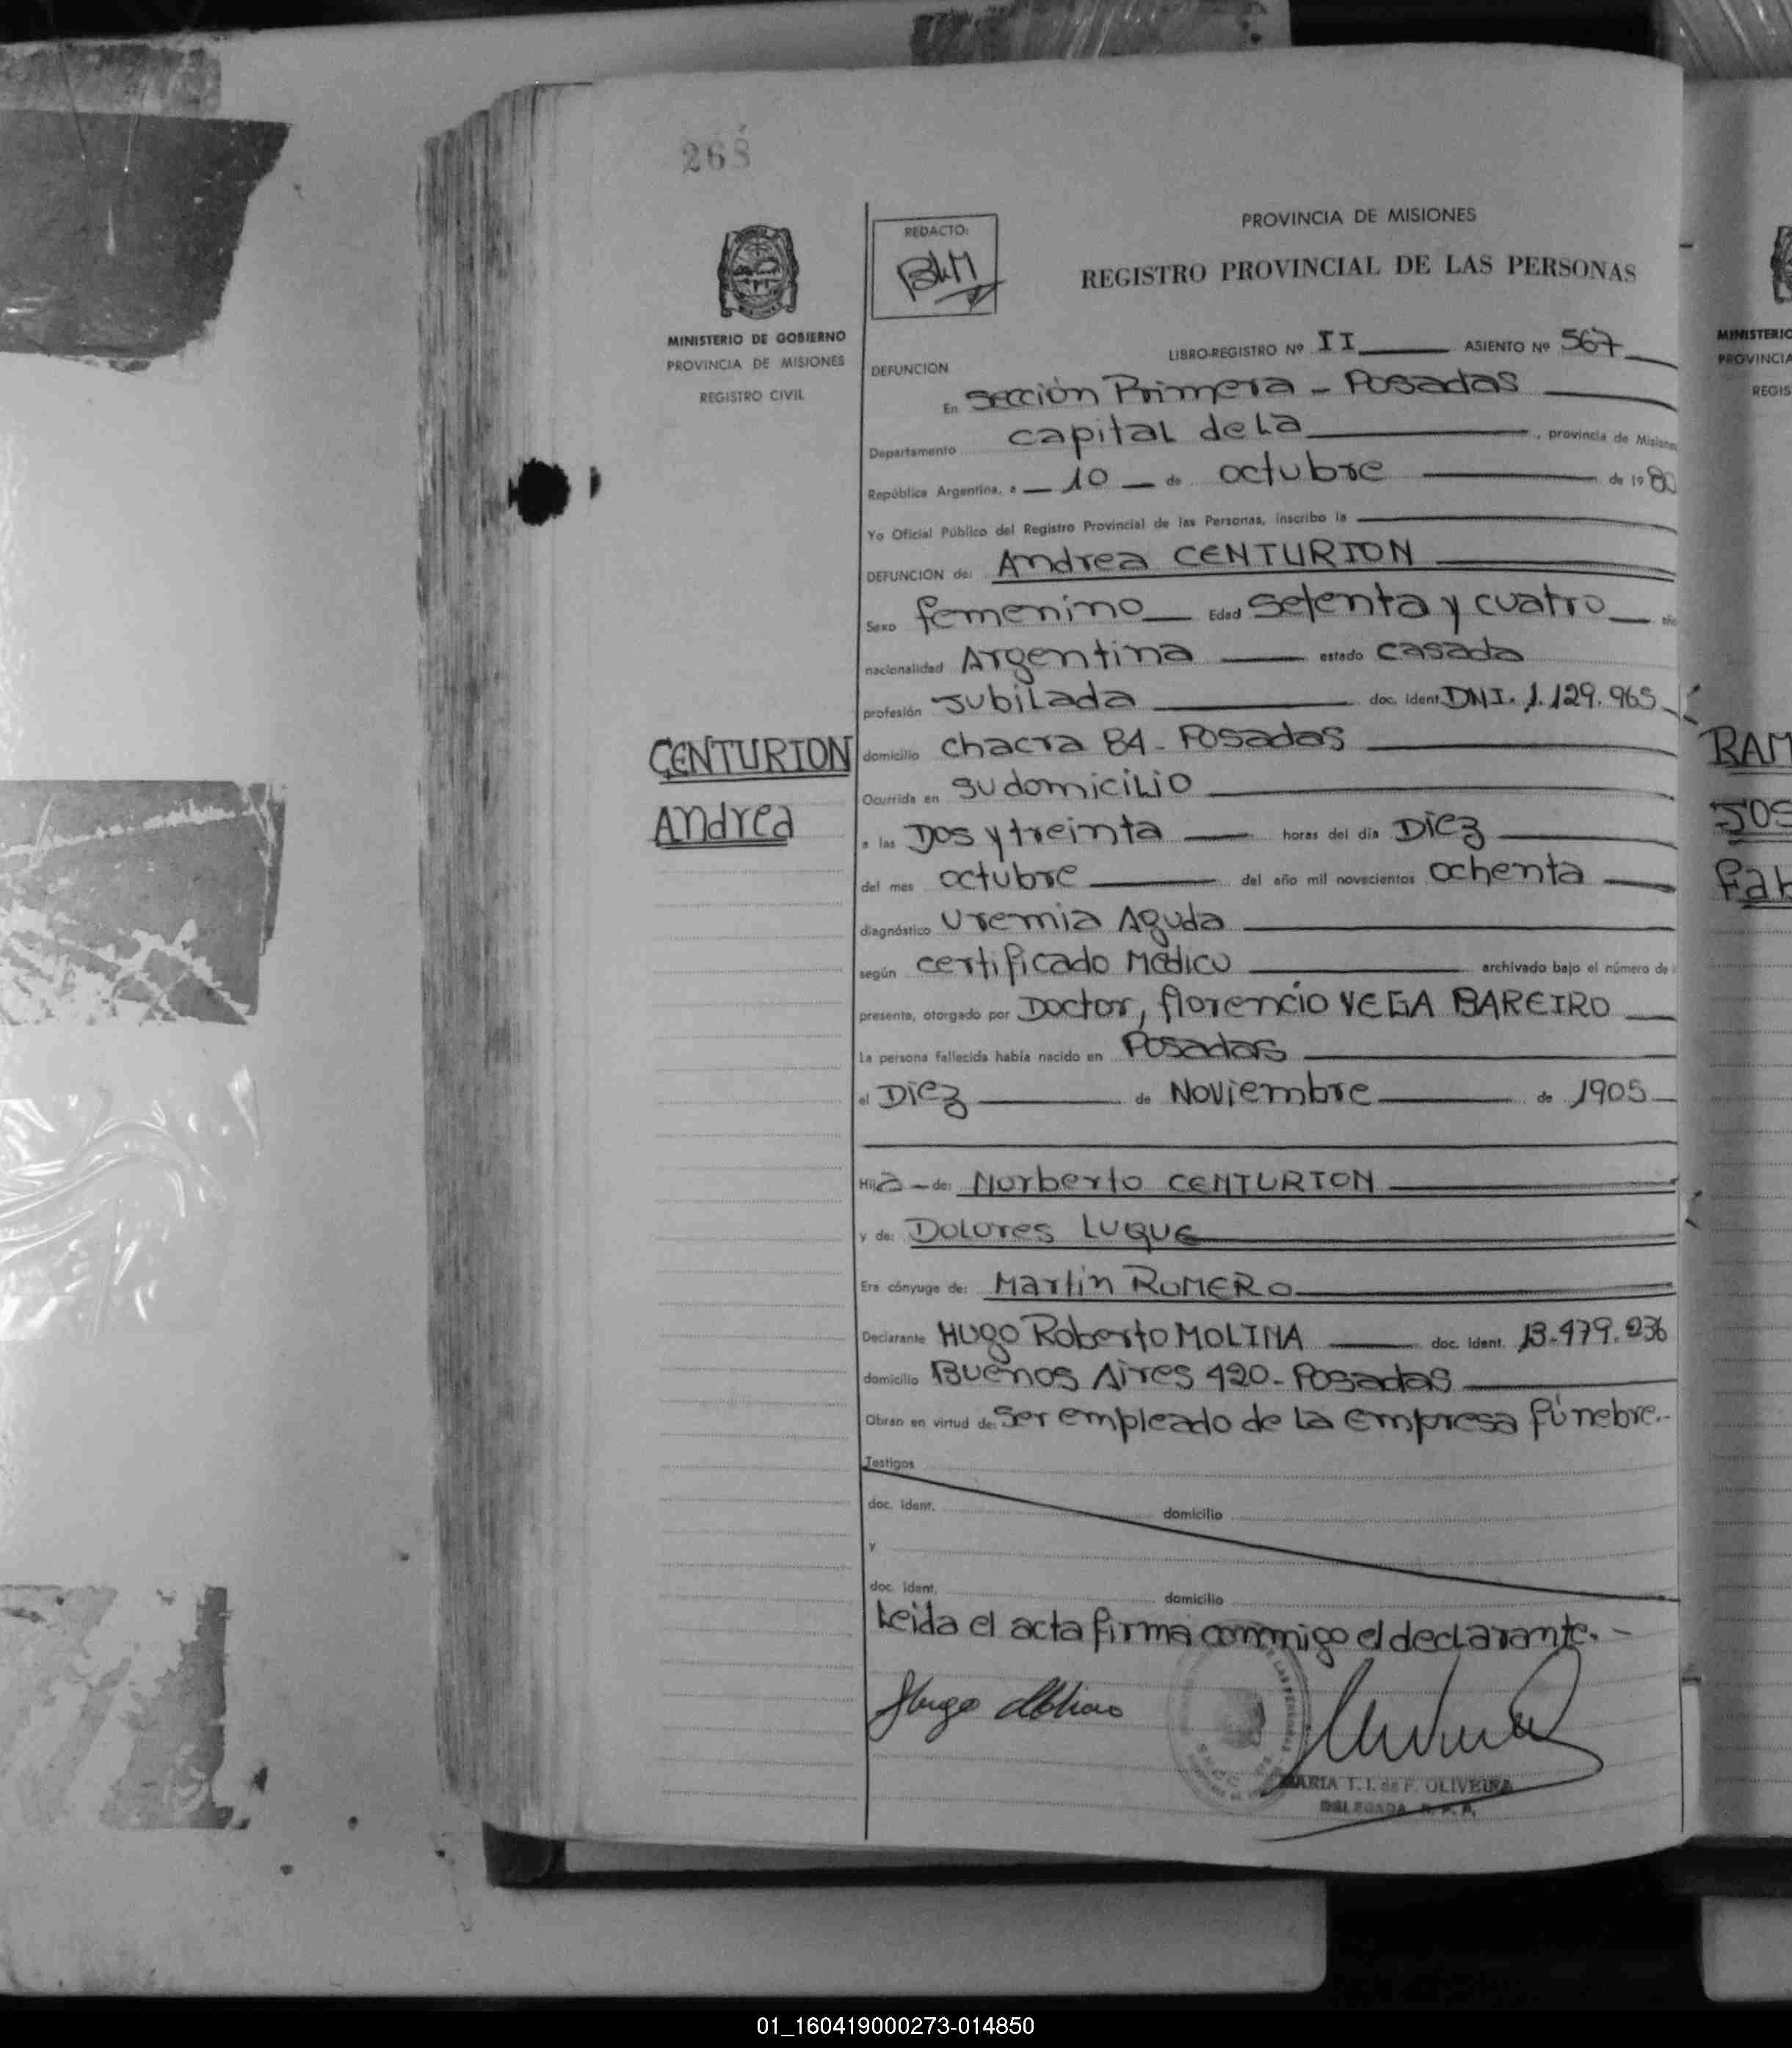 268
PROVINCIA DE MISIONES
REGISTRO PROVINCIAL DE LAS PERSONAS
REDACTO:
MINISTERIO DE GOBIERNO
PROVINCIA DE MISIONES
REGISTRO CIVIL
LIBRO-REGISTRO Nº II ASIENTO Nº 567
DEFUNCION
En Sección Primera - Posadas
Departamento capital de la, provincia de Misiones
República Argentina, a 10 de octubre de 1980
Yo Oficial Público del Registro Provincial de las Personas, inscribo la
DEFUNCION de: Andrea CENTURION
Sexo femenino Edad Setenta y cuatro año
nacionalidad Argentina estado casada
profesión Jubilada doc. ident. DNI. 1.129.965
CENTURION
Andrea
domicilio chacra 84 - Posadas
Ocurrida en su domicilio
a las Dos y treinta horas del día Diez
del mes octubre del año mil novecientos ochenta
diagnóstico Uremia Aguda
según certificado Médico archivado bajo el número de
presente, otorgado por Doctor, florencio VEGA BAREIRO
La persona fallecida había nacido en Posadas
el Diez de Noviembre de 1905
Hija de: Norberto CENTURION
y de: Dolores LUQUE
Era cónyuge de: Martin ROMERO
Declarante Hugo Roberto MOLINA doc. ident. 13.479.236
domicilio Buenos Aires 420 - Posadas
Obran en virtud de: Ser empleado de la empresa fúnebre.-
Testigos
doc. ident. domicilio
y
doc. ident. domicilio
Leida el acta firma conmigo el declarante. -
Hugo Molina
MARIA T. I. de F. OLIVEIRA
DELEGADA R. P. P.
MINISTERIO
PROVINCIA
REGIS
RAM
JOS
Fab
01_160419000273-014850